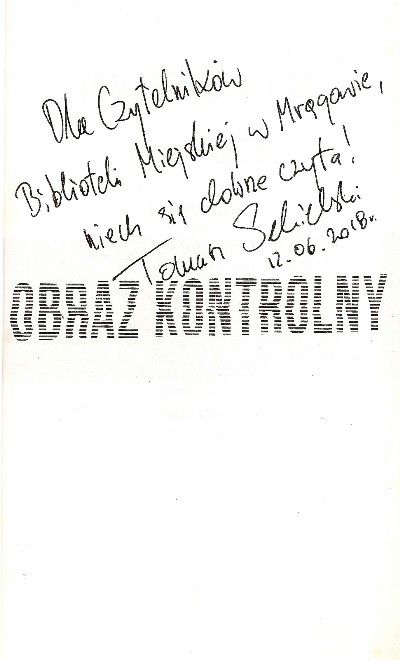 Dla Czytelników
Biblioteki Miejskiej w Mrągowie,
niech się dobrze czyta!
Tomasz Sekielski
12.06.2018r.
OBRAZ KONTROLNY